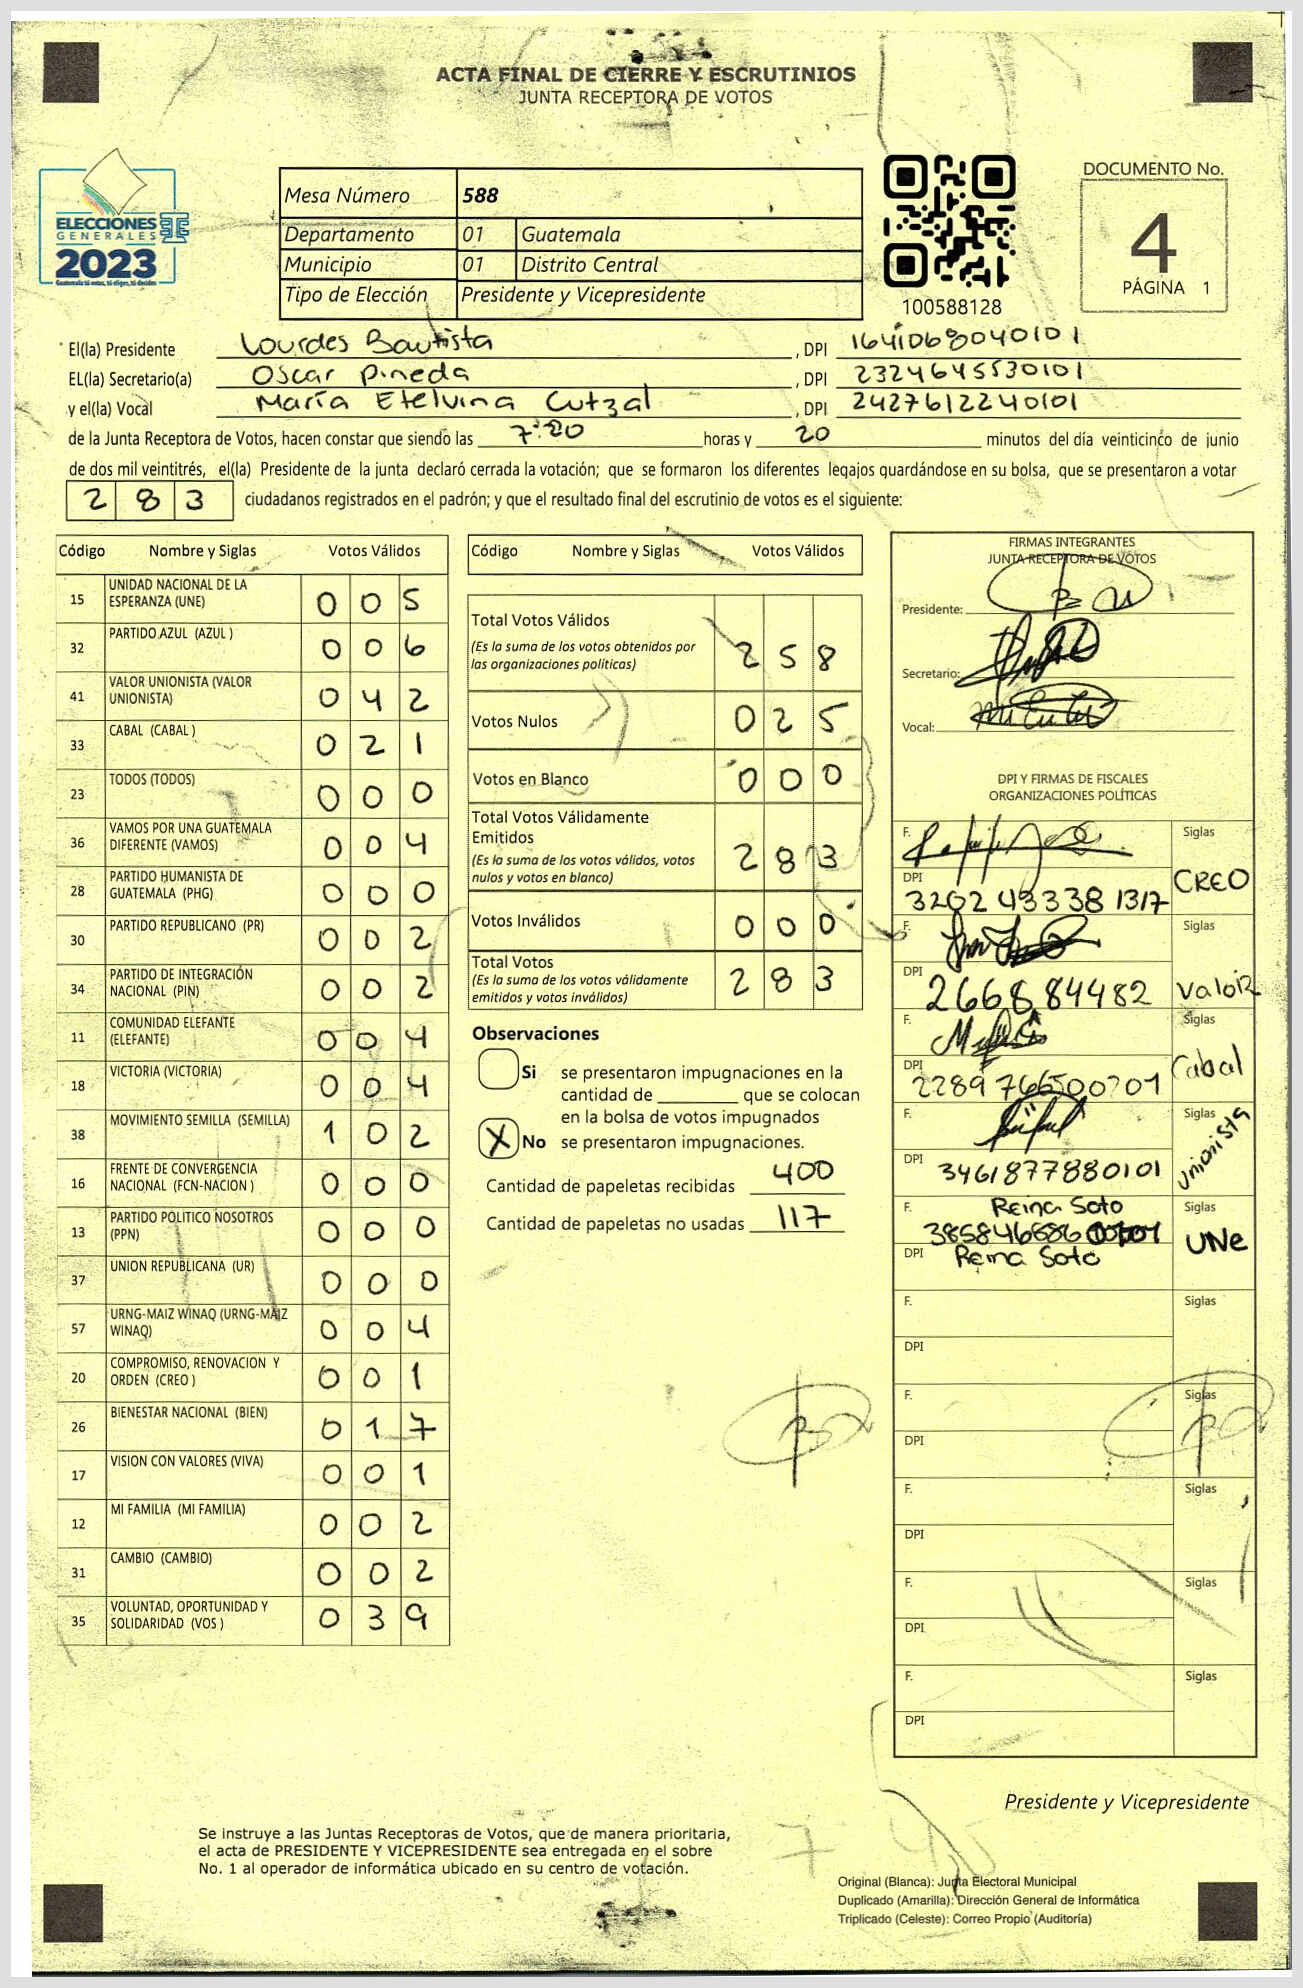 ACTA FINAL DE CIERRE Y ESCRUTINIOS
JUNTA RECEPTORA DE VOTOS
ELECCIONES
GENERALES
2023
Guatemala tú votas, tú eliges, tú decides
Mesa Número 588
Departamento 01 Guatemala
Municipio 01 Distrito Central
Tipo de Elección Presidente y Vicepresidente
100588128
DOCUMENTO No.
4
PÁGINA 1
El(la) Presidente Lourdes Bautista , DPI 1641068040101
EL(la) Secretario(a) Oscar Pineda , DPI 2324645530101
y el(la) Vocal María Etelvina Cutzal , DPI 2427612240101
de la Junta Receptora de Votos, hacen constar que siendo las 7:20 horas y 20 minutos del día veinticinco de junio
de dos mil veintitrés, el(la) Presidente de la junta declaró cerrada la votación; que se formaron los diferentes legajos guardándose en su bolsa, que se presentaron a votar
283 ciudadanos registrados en el padrón; y que el resultado final del escrutinio de votos es el siguiente:
Código Nombre y Siglas Votos Válidos
15 UNIDAD NACIONAL DE LA ESPERANZA (UNE) 005
32 PARTIDO AZUL (AZUL ) 006
41 VALOR UNIONISTA (VALOR UNIONISTA) 042
33 CABAL (CABAL ) 021
23 TODOS (TODOS) 000
36 VAMOS POR UNA GUATEMALA DIFERENTE (VAMOS) 004
28 PARTIDO HUMANISTA DE GUATEMALA (PHG) 000
30 PARTIDO REPUBLICANO (PR) 002
34 PARTIDO DE INTEGRACIÓN NACIONAL (PIN) 002
11 COMUNIDAD ELEFANTE (ELEFANTE) 004
18 VICTORIA (VICTORIA) 004
38 MOVIMIENTO SEMILLA (SEMILLA) 102
16 FRENTE DE CONVERGENCIA NACIONAL (FCN-NACION ) 000
13 PARTIDO POLITICO NOSOTROS (PPN) 000
37 UNION REPUBLICANA (UR) 000
57 URNG-MAIZ WINAQ (URNG-MAIZ WINAQ) 004
20 COMPROMISO, RENOVACION Y ORDEN (CREO ) 001
26 BIENESTAR NACIONAL (BIEN) 017
17 VISION CON VALORES (VIVA) 001
12 MI FAMILIA (MI FAMILIA) 002
31 CAMBIO (CAMBIO) 002
35 VOLUNTAD, OPORTUNIDAD Y SOLIDARIDAD (VOS ) 039
Código Nombre y Siglas Votos Válidos
Total Votos Válidos 258
(Es la suma de los votos obtenidos por
las organizaciones políticas)
Votos Nulos 025
Votos en Blanco 000
Total Votos Válidamente
Emitidos 283
(Es la suma de los votos válidos, votos
nulos y votos en blanco)
Votos Inválidos 000
Total Votos 283
(Es la suma de los votos válidamente
emitidos y votos inválidos)
Observaciones
Si se presentaron impugnaciones en la
cantidad de ________ que se colocan
en la bolsa de votos impugnados
X No se presentaron impugnaciones.
Cantidad de papeletas recibidas 400
Cantidad de papeletas no usadas 117
FIRMAS INTEGRANTES
JUNTA RECEPTORA DE VOTOS
Presidente:
Secretario:
Vocal:
DPI Y FIRMAS DE FISCALES
ORGANIZACIONES POLÍTICAS
F. Siglas
DPI 3202 43338 1317 CREO
F. Siglas
DPI 266884482 Valor
F. Siglas
DPI 2289766500701 Cabal
F. Siglas
DPI 3461877880101 Unionista
F. Reina Soto Siglas
UNe
DPI Reina Soto
F. Siglas
DPI
F. Siglas
DPI
F. Siglas
DPI
F. Siglas
DPI
F. Siglas
DPI
Presidente y Vicepresidente
Se instruye a las Juntas Receptoras de Votos, que de manera prioritaria,
el acta de PRESIDENTE Y VICEPRESIDENTE sea entregada en el sobre
No. 1 al operador de informática ubicado en su centro de votación.
Original (Blanca): Junta Electoral Municipal
Duplicado (Amarilla): Dirección General de Informática
Triplicado (Celeste): Correo Propio (Auditoría)